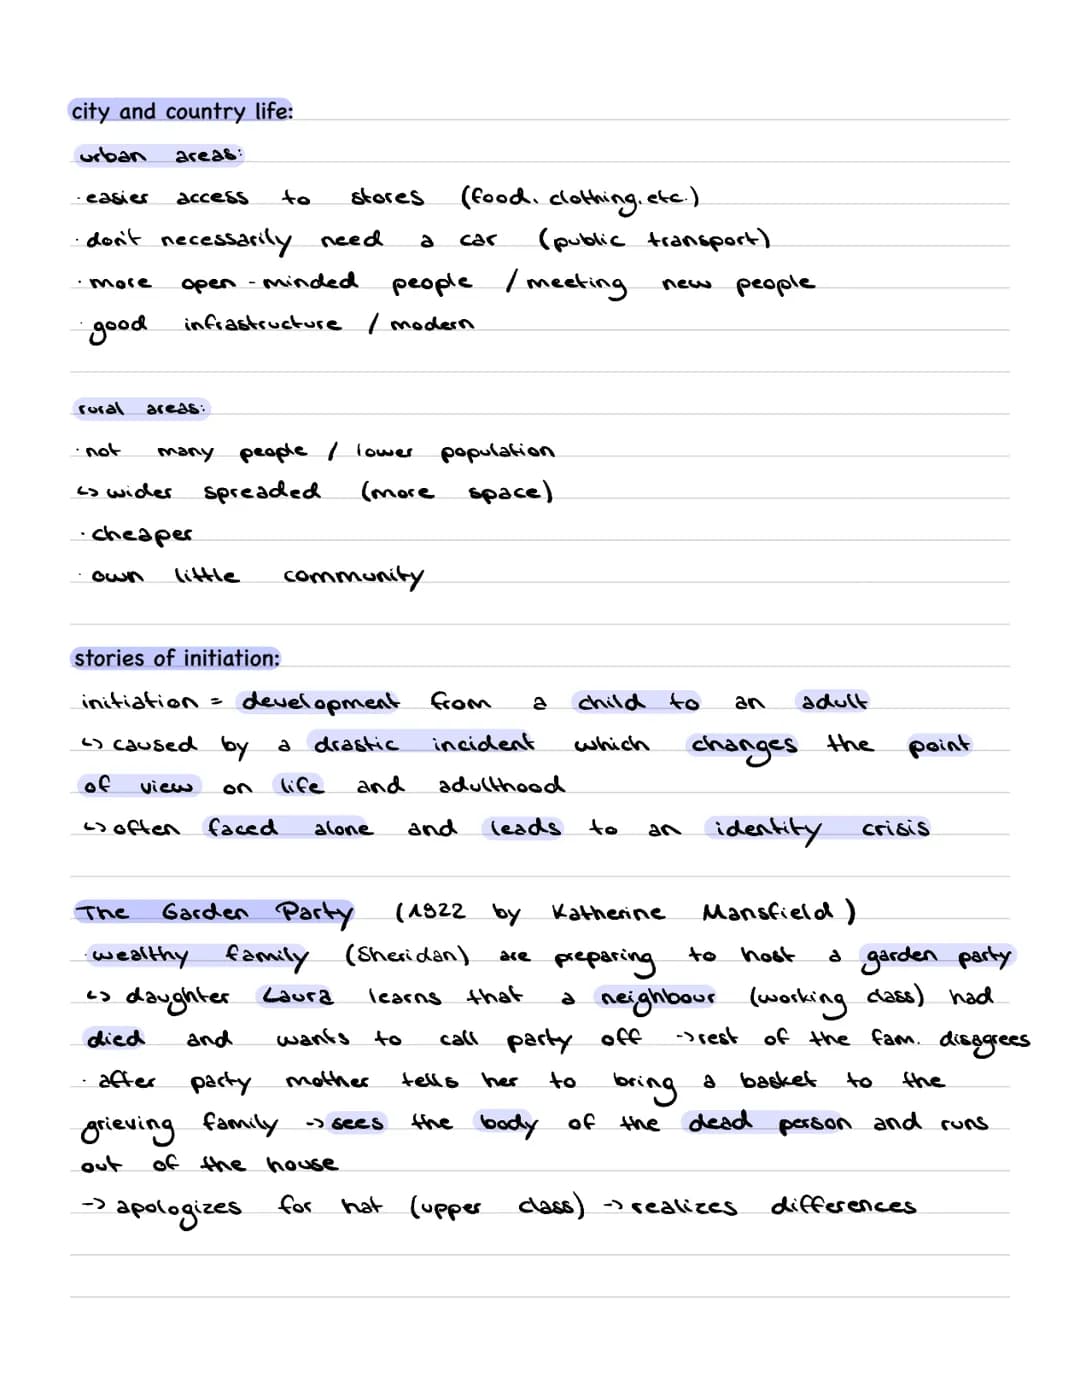 city and country life:
urban areas:
· easier access to stores (food, clothing, etc.)
· don't necessarily need a car (public transport)
· more open-minded people / meeting new people
· good infrastructure / modern
rural areas:
· not many people / lower population
↳ wider spreaded (more space)
· cheaper
· own little community
stories of initiation:
initiation = development from a child to an adult
↳ caused by a drastic incident which changes the point
of view on life and adulthood
↳ often faced alone and leads to an identity crisis
The Garden Party (1922 by Katherine Mansfield)
· wealthy family (Sheridan) are preparing to host a garden party
↳ daughter Laura learns that a neighbour (working class) had
died and wants to call party off -> rest of the fam. disagrees
· after party mother tells her to bring a basket to the
grieving family -> sees the body of the dead person and runs
out of the house
-> apologizes for hat (upper class) -> realizes differences